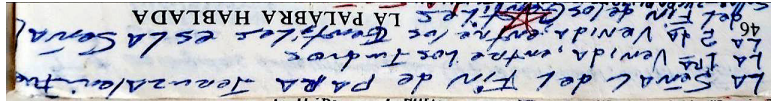 LA Señal del Fin de PARA Jeruzalen, fue
LA 1RA Venida, entre los Judios
LA 2da Venida, entre los Gentiles es LA Señal
del Fin de los Gentiles
46 LA PALABRA HABLADA